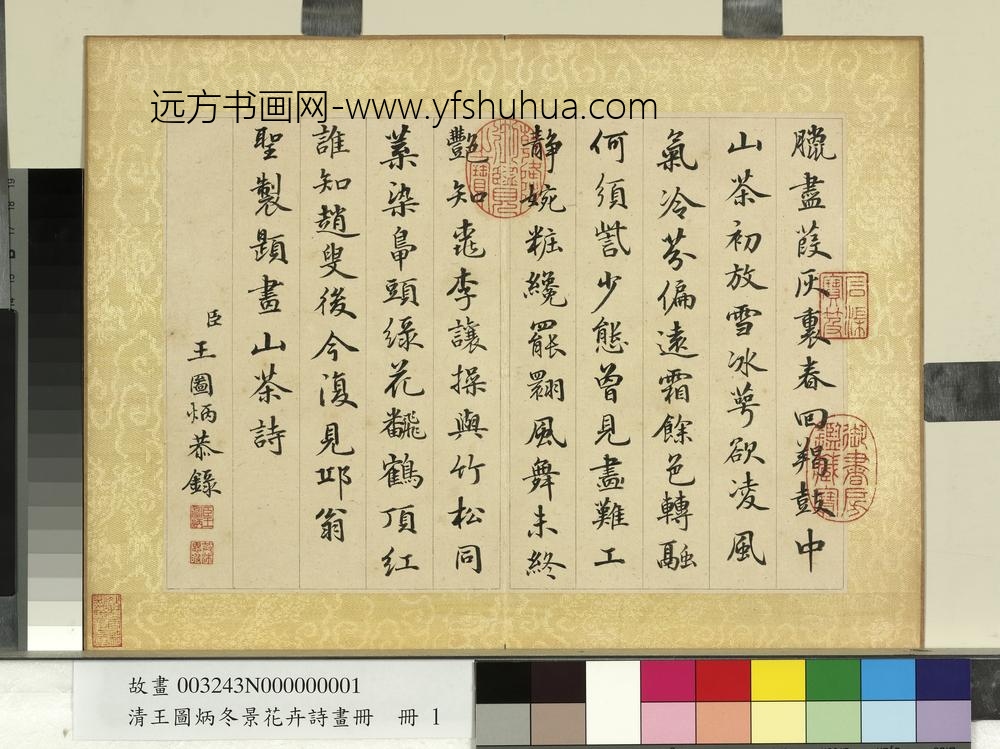 远方书画网-www.yfshuhua.com
臘盡葭灰裏春回羯鼓中
山茶初放雪冰萼欲凌風
氣冷芬偏遠霜餘色轉融
何須訾少態曾見畫難工
靜婉粧纔罷翾風舞未終
艷知桃李讓操與竹松同
葉染鳧頭綠花翻鶴頂紅
誰知趙叟後今復見邛翁
聖製題畫山茶詩
臣王圖炳恭錄
故畫 003243N000000001
清王圖炳冬景花卉詩畫冊 冊 1